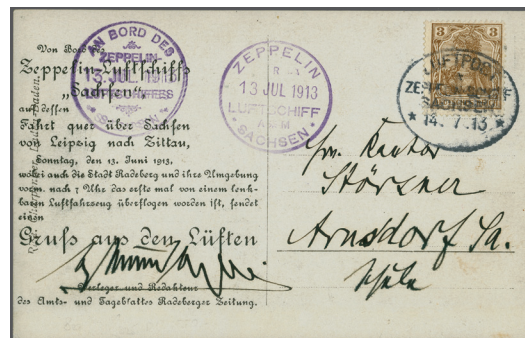 Von Bord des
Zeppelin-Luftschiffs
„Sachsen“
auf dessen
Fahrt quer über Sachsen
von Leipzig nach Zittau,
Sonntag, den 13. Juni 1913,
wobei auch die Stadt Radeberg und ihre Umgebung
vorm. nach 7 Uhr das erste mal von einem lenk-
baren Luftfahrzeug überflogen worden ist, sendet
einen
Gruß aus den Lüften
Verleger und Redakteur
des Amts- und Tageblattes Radeberger Zeitung.
AN BORD DES
ZEPPELIN
13 JUL 1913
LUFTSCHIFFES
SACHSEN
ZEPPELIN
13 JUL 1913
LUFTSCHIFF
SACHSEN
3 3
LUFTPOST
SACHSEN
* 14. 7. 13 *
Kantor
Störzner
Arnsdorf Sa.